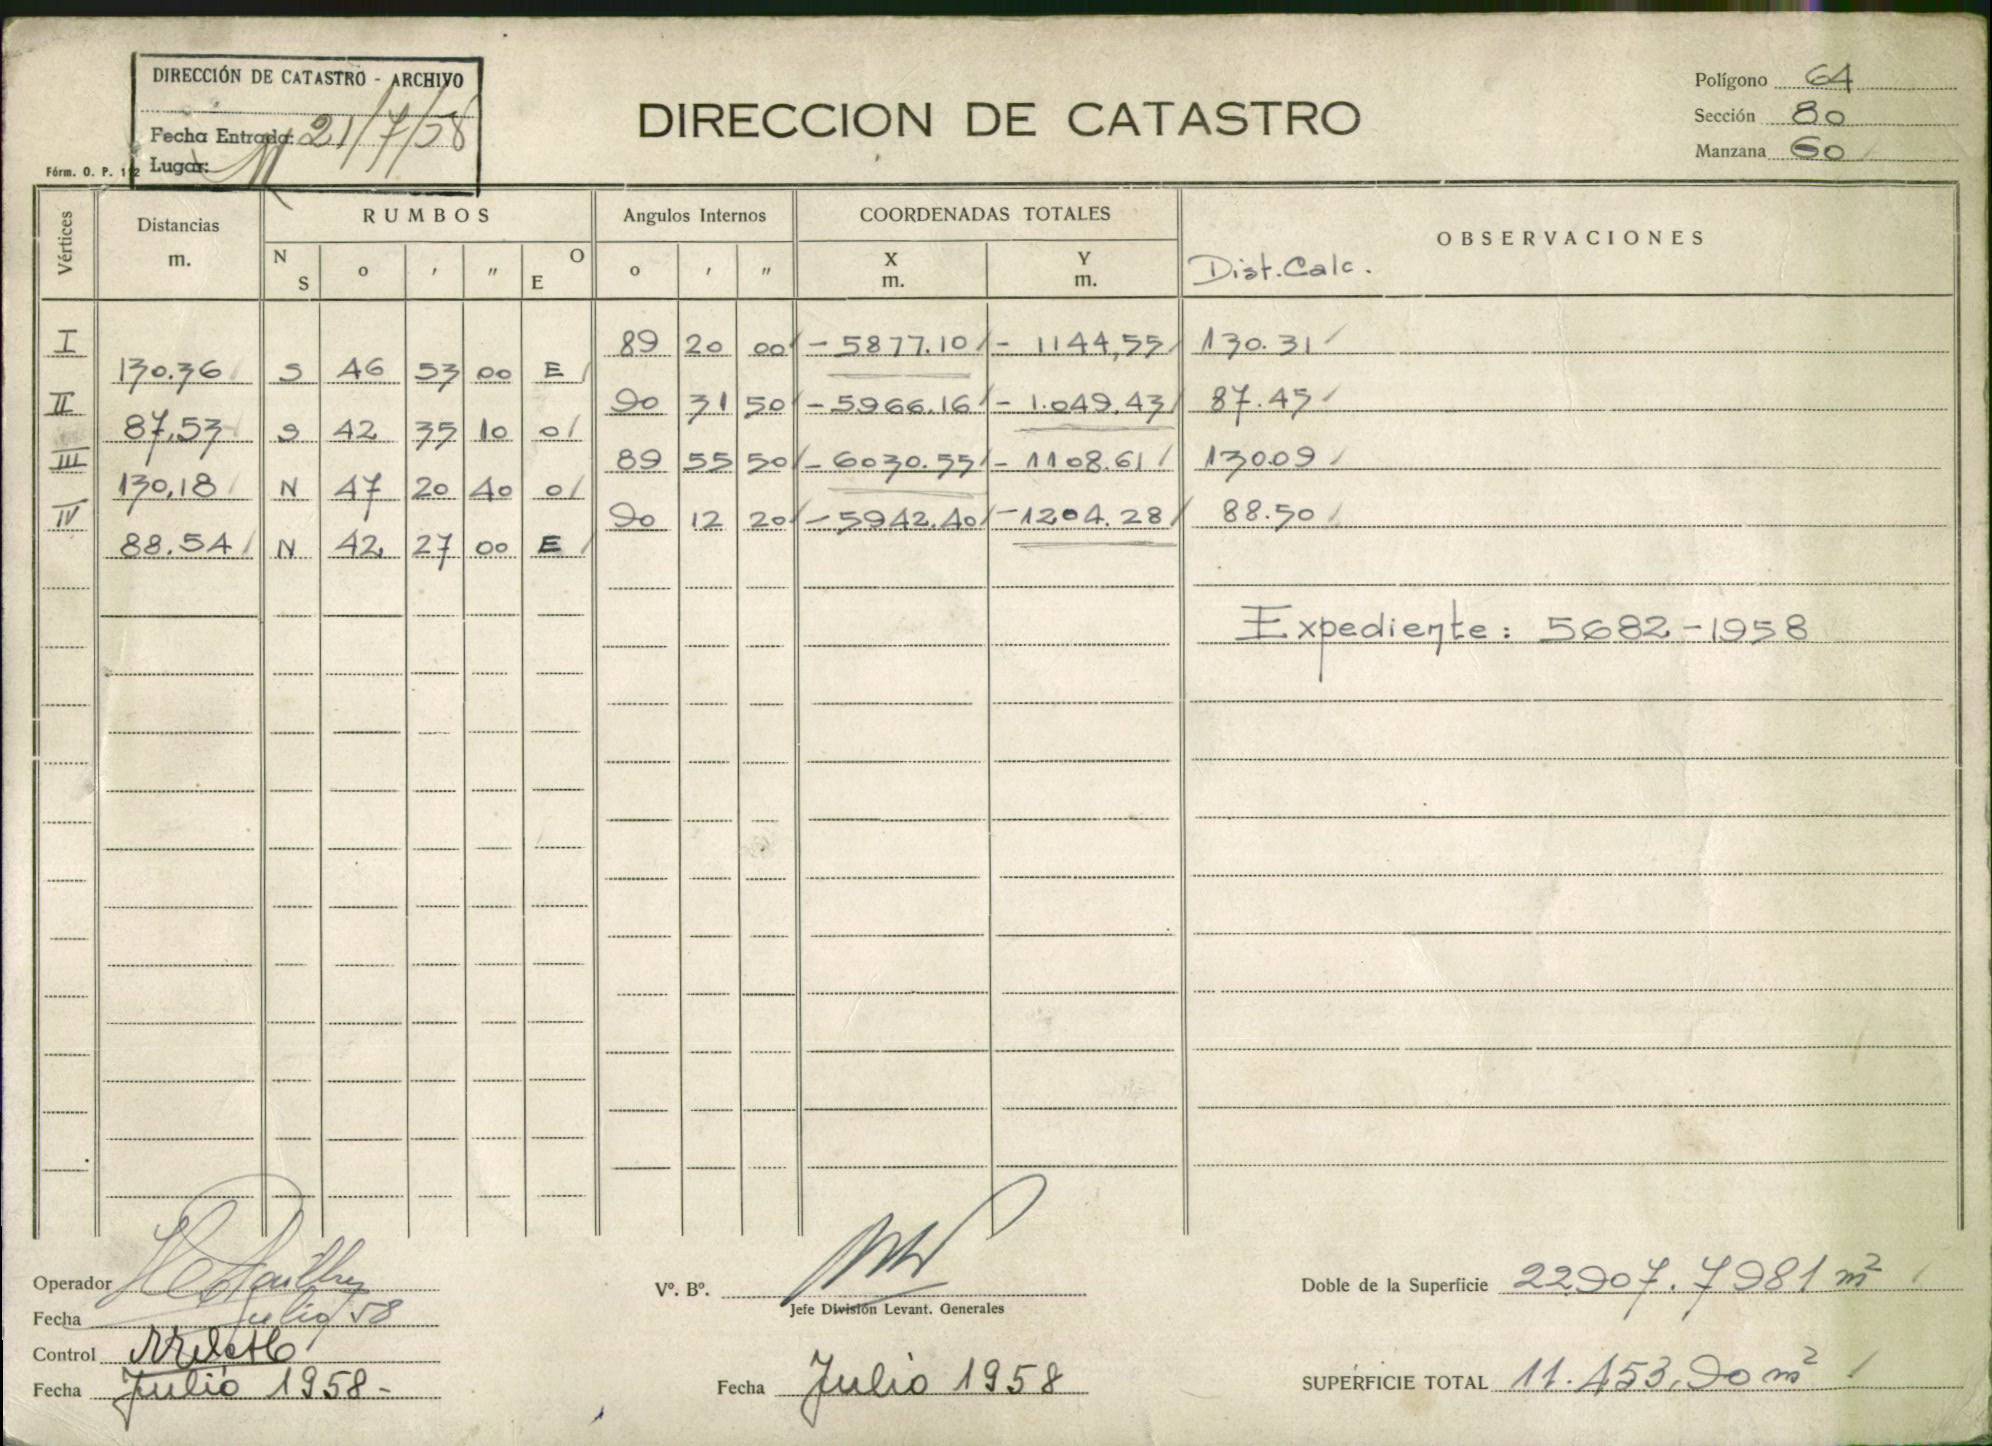 DIRECCIÓN DE CATASTRO - ARCHIVO
Fecha Entrada: 21/7/58
Lugar:
Fórm. O. P. 112
DIRECCION DE CATASTRO
Polígono 64
Sección 80
Manzana 60
Vértices Distancias m. RUMBOS Angulos Internos COORDENADAS TOTALES OBSERVACIONES
N S o ′ ″ O E o ′ ″ X m. Y m. Dist. Calc.
I 89 20 00 - 5877.10 - 1144,55 130.31
130.36 S 46 53 00 E
II 90 31 50 - 5966.16 - 1.049.43 87.45
87,53 S 42 35 10 O
III 89 55 50 - 6030.55 - 1108.61 130.09
130,18 N 47 20 40 O
IV 90 12 20 - 5942.40 - 1204.28 88.50
88.54 N 42 27 00 E
Expediente: 5682-1958
Operador
Fecha Julio 58
Control
Fecha Julio 1958-
Vº. Bº.
Jefe División Levant. Generales
Fecha Julio 1958
Doble de la Superficie 22907.7981 m²
SUPERFICIE TOTAL 11.453,90 m²